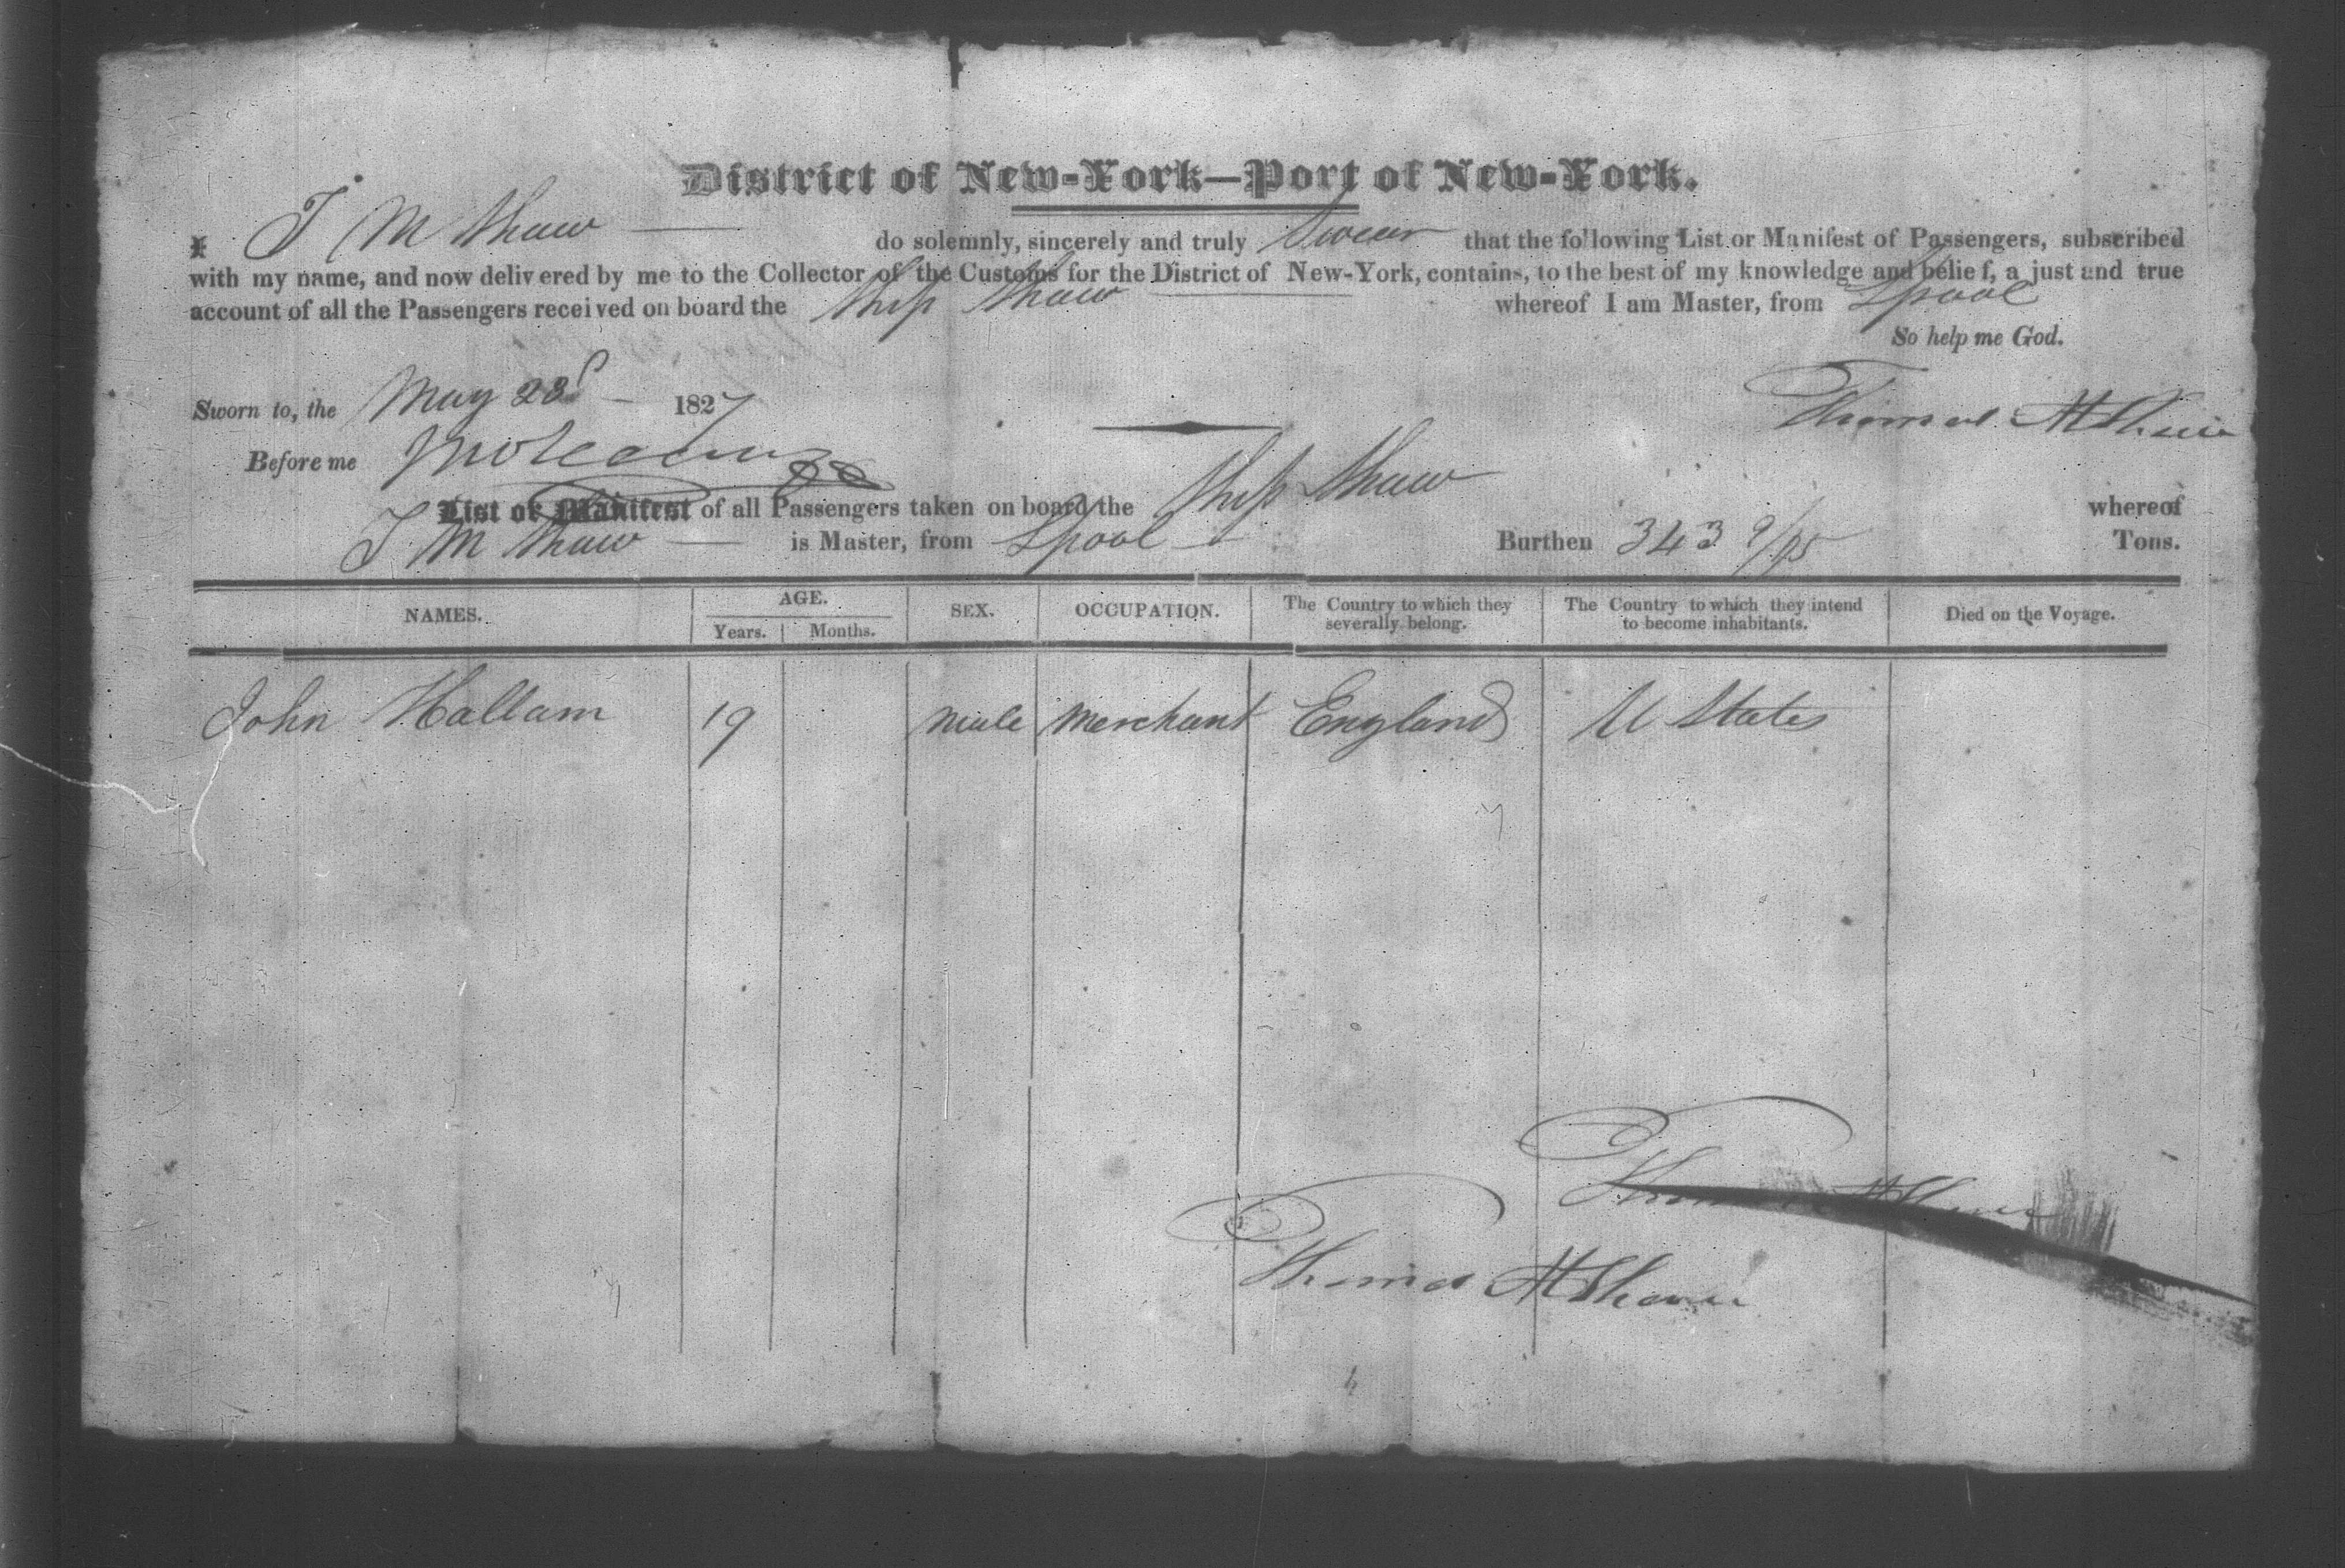 District of New-York—Port of New-York.
I T M Shaw do solemnly, sincerely and truly Swear that the following List or Manifest of Passengers, subscribed
with my name, and now delivered by me to the Collector of the Customs for the District of New-York, contains, to the best of my knowledge and belief, a just and true
account of all the Passengers received on board the Ship Shaw whereof I am Master, from Lpool
So help me God.
Sworn to, the May 23d 1827
Thomas M Shaw
Before me
List or Manifest of all Passengers taken on board the Ship Shaw whereof
T M Shaw is Master, from Lpool Burthen 343 9/95 Tons.
NAMES. AGE. Years. Months. SEX. OCCUPATION. The Country to which they severally belong. The Country to which they intend to become inhabitants. Died on the Voyage.
John Hallam 19 male merchant England U States
Thomas M Shaw
Thomas M Shaw